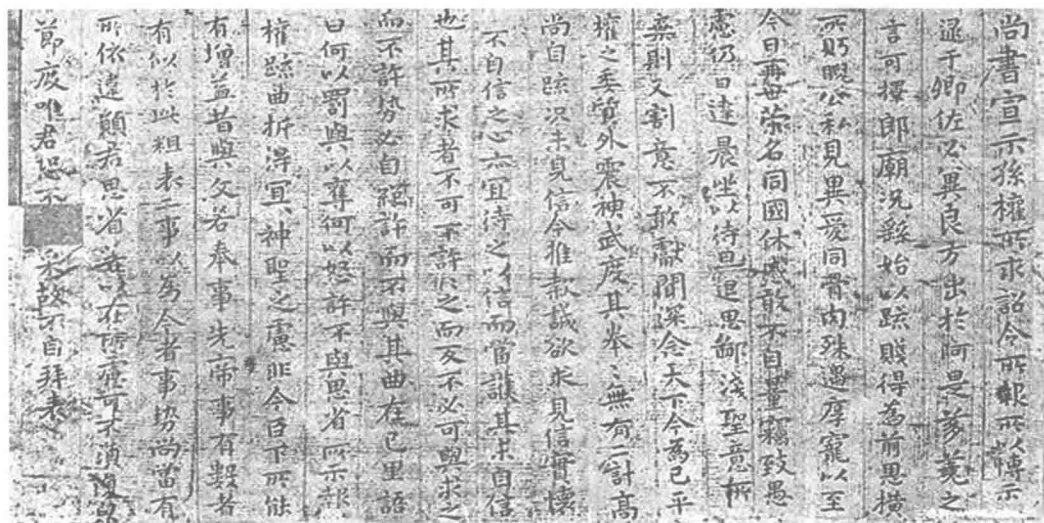 尚書宣示孫權所求詔令所報所以博示
逮于卿佐必冀良方出於阿是芻蕘之
言可擇郎廟況繇始以疏賤得為前恩橫
所眄睨公私見異愛同骨肉殊遇厚寵以至
今日再世榮名同國休慼敢不自量竊致愚
慮仍日達晨坐以待旦退思鄙淺聖意所
棄則又割意不敢獻聞深念天下今為已平
權之委質外震神武度其拳〻無有二計高
尚自疏況未見信今推款誠欲求見信實懷
不自信之心亦宜待之以信而當護其未自信
也其所求者不可不許許之而反不必可與求之
而不許勢必自絕許而不與其曲在己里語
曰何以罰與以奪何以怒許不與思省所示報
權疏曲折得宜宜神聖之慮非今臣下所能
有增益昔與文若奉事先帝事有數者
有似於此粗表二事以為今者事勢尚當有
所依違願君思省若以在所慮可不須復貌
節度唯君恐不可采故不自拜表